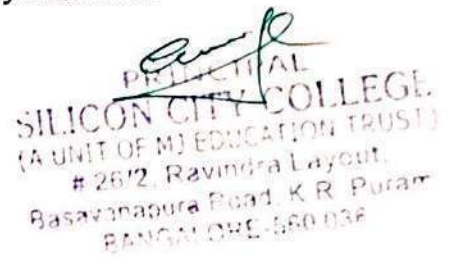 PRINCIPAL
SILICON CITY COLLEGE
(A UNIT OF MJ EDUCATION TRUST)
# 26/2, Ravindra Layout,
Basavanapura Road, K R Puram
BANGALORE-560 036